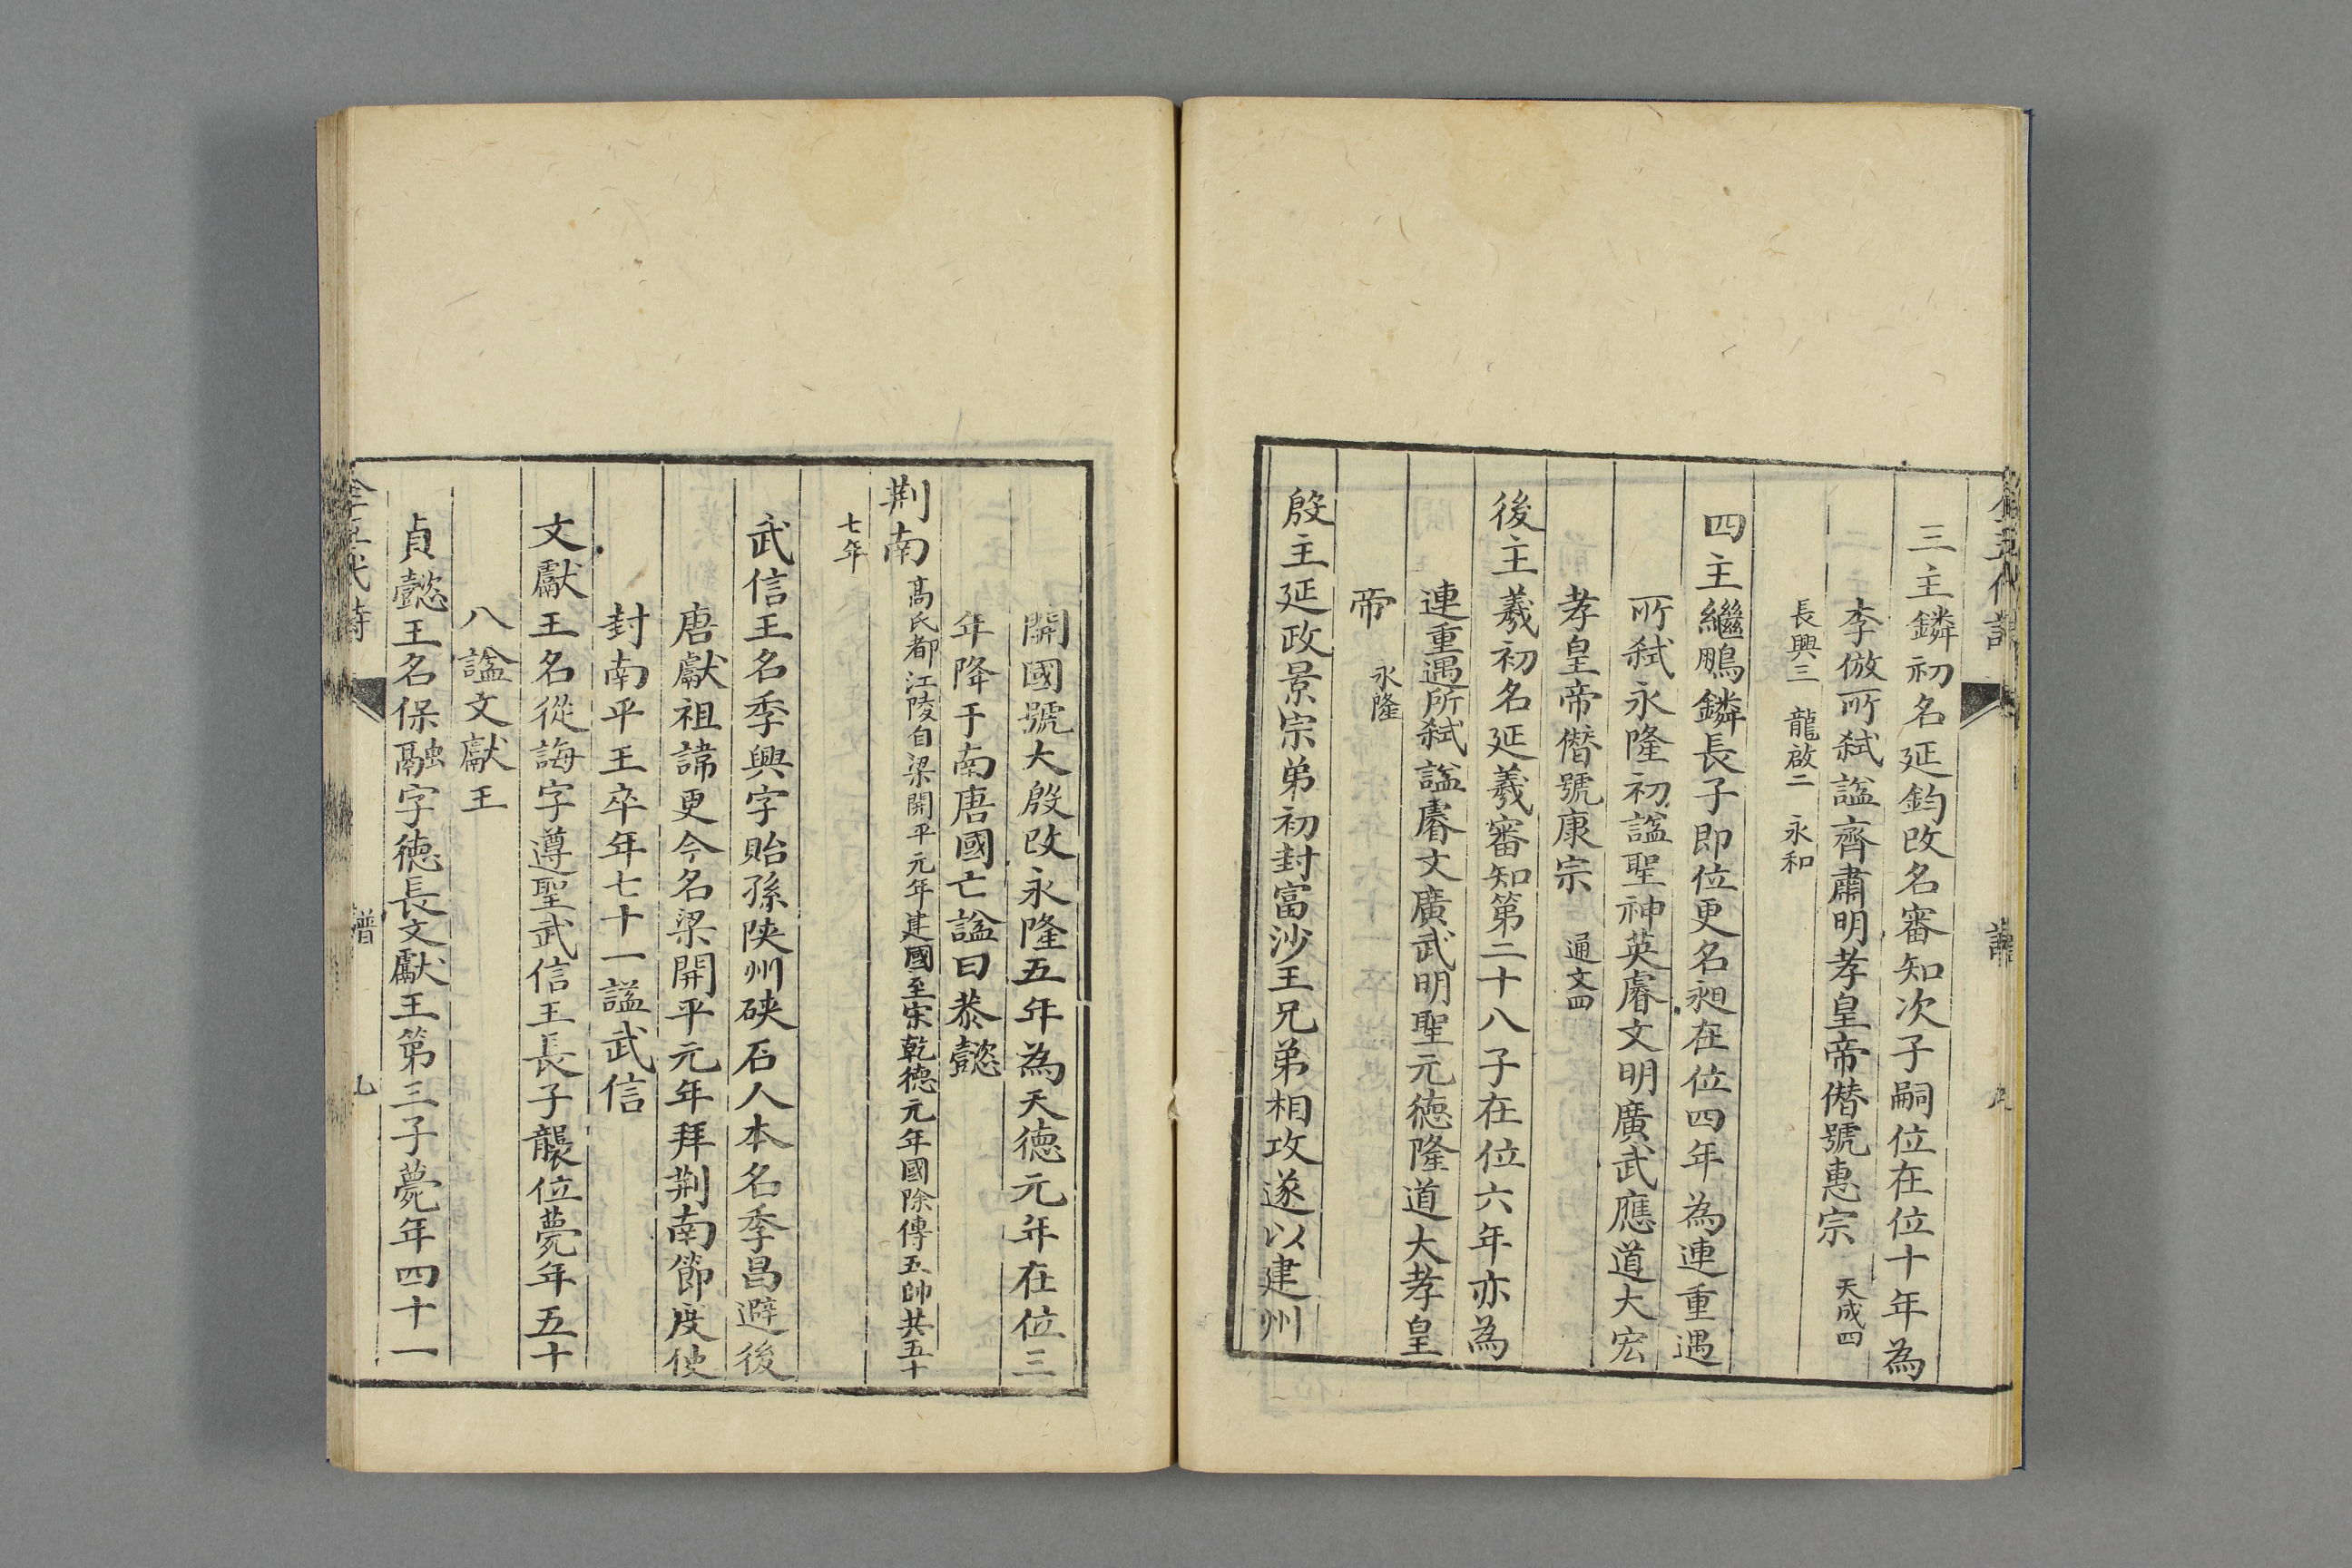 三主鏻初名延鈞改名審知次子嗣位在位十年為
李倣所弑謚齊肅明孝皇帝僣號惠宗 天成四
長興三 龍啟二 永和
四主繼鵬鏻長子即位更名昶在位四年為連重遇
所弑永隆初謚聖神英睿文明廣武應道大宏
孝皇帝僣號康宗 通文四
後主羲初名延羲審知第二十八子在位六年亦為
連重遇所弑謚睿文廣武明聖元德隆道大孝皇
帝 永隆
殷主延政景宗弟初封富沙王兄弟相攻遂以建州
開國號大殷改永隆五年為天德元年在位三
年降于南唐國亡謚曰恭懿
荆南 高氏都江陵自梁開平元年建國至宋乾德元年國除傳五帥共五十
七年
武信王名季興字貽孫陝州硤石人本名季昌避後
唐獻祖諱更今名梁開平元年拜荆南節度使
封南平王卒年七十一謚武信
文獻王名從誨字遵聖武信王長子襲位薨年五十
八謚文獻王
貞懿王名保融字德長文獻王第三子薨年四十一
全五代詩 譜 九